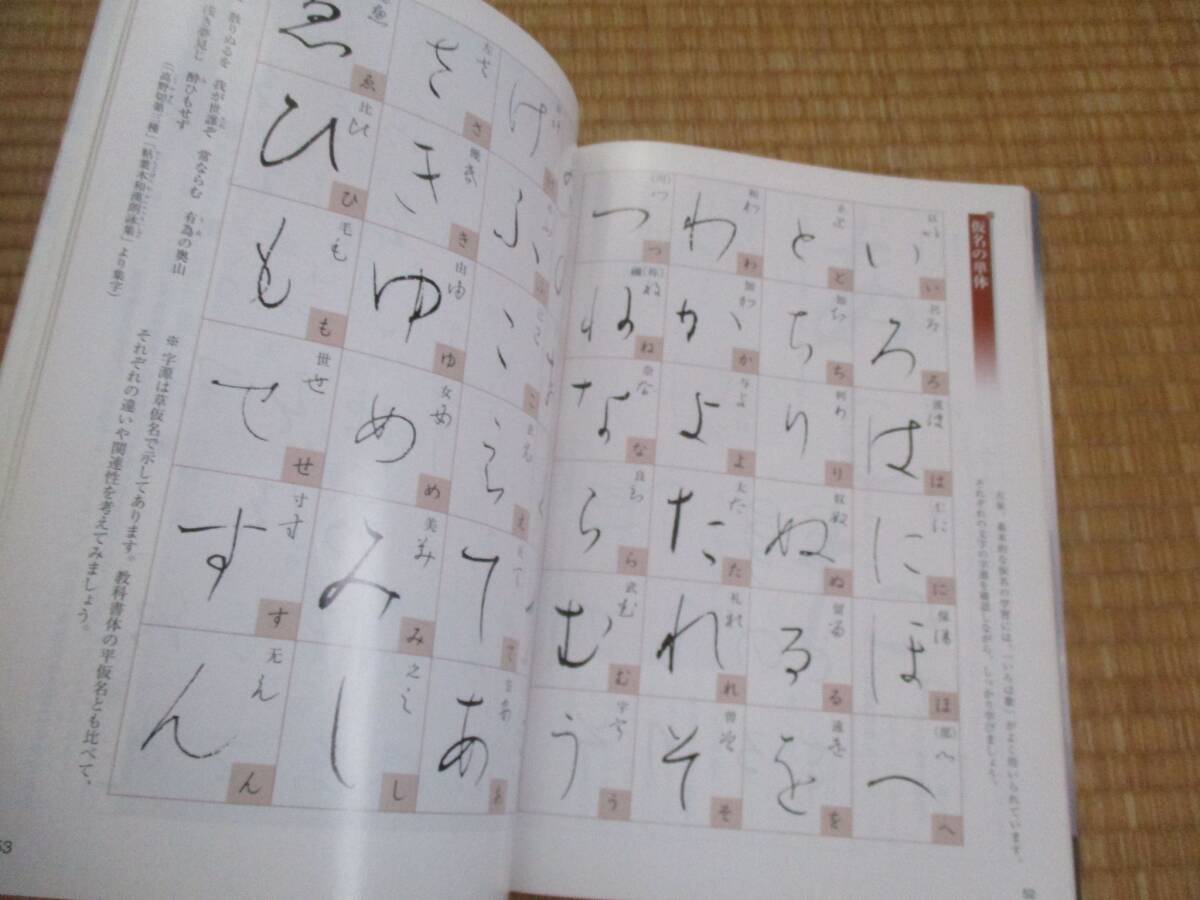 仮名の単体
古来、基本的な仮名の学習には、「いろは歌」がよく用いられています。
それぞれの文字の字源を確認しながら、しっかり学びましょう。
以 い
ろ
は
仁 に
保 ほ
(部) へ
止 と
知 ち
利 り
奴 ぬ
留 る
遠 を
和 わ
加 か
与 よ
太 た
礼 れ
曽 そ
(川) つ
祢(禰) ね
奈 な
良 ら
武 む
宇 う
52
け
ふ
こ
え
て
あ
左 さ
幾 き
由 ゆ
女 め
美 み
之 し
ゑ
比 ひ
毛 も
世 せ
寸 す
无 ん
散りぬるを 我が世誰ぞ 常ならむ 有為の奥山
浅き夢見じ 酔ひもせず
(「高野切第三種」「粘葉本和漢朗詠集」より集字)
※ 字源は草仮名で示してあります。教科書体の平仮名とも比べて、
それぞれの違いや関連性を考えてみましょう。
53